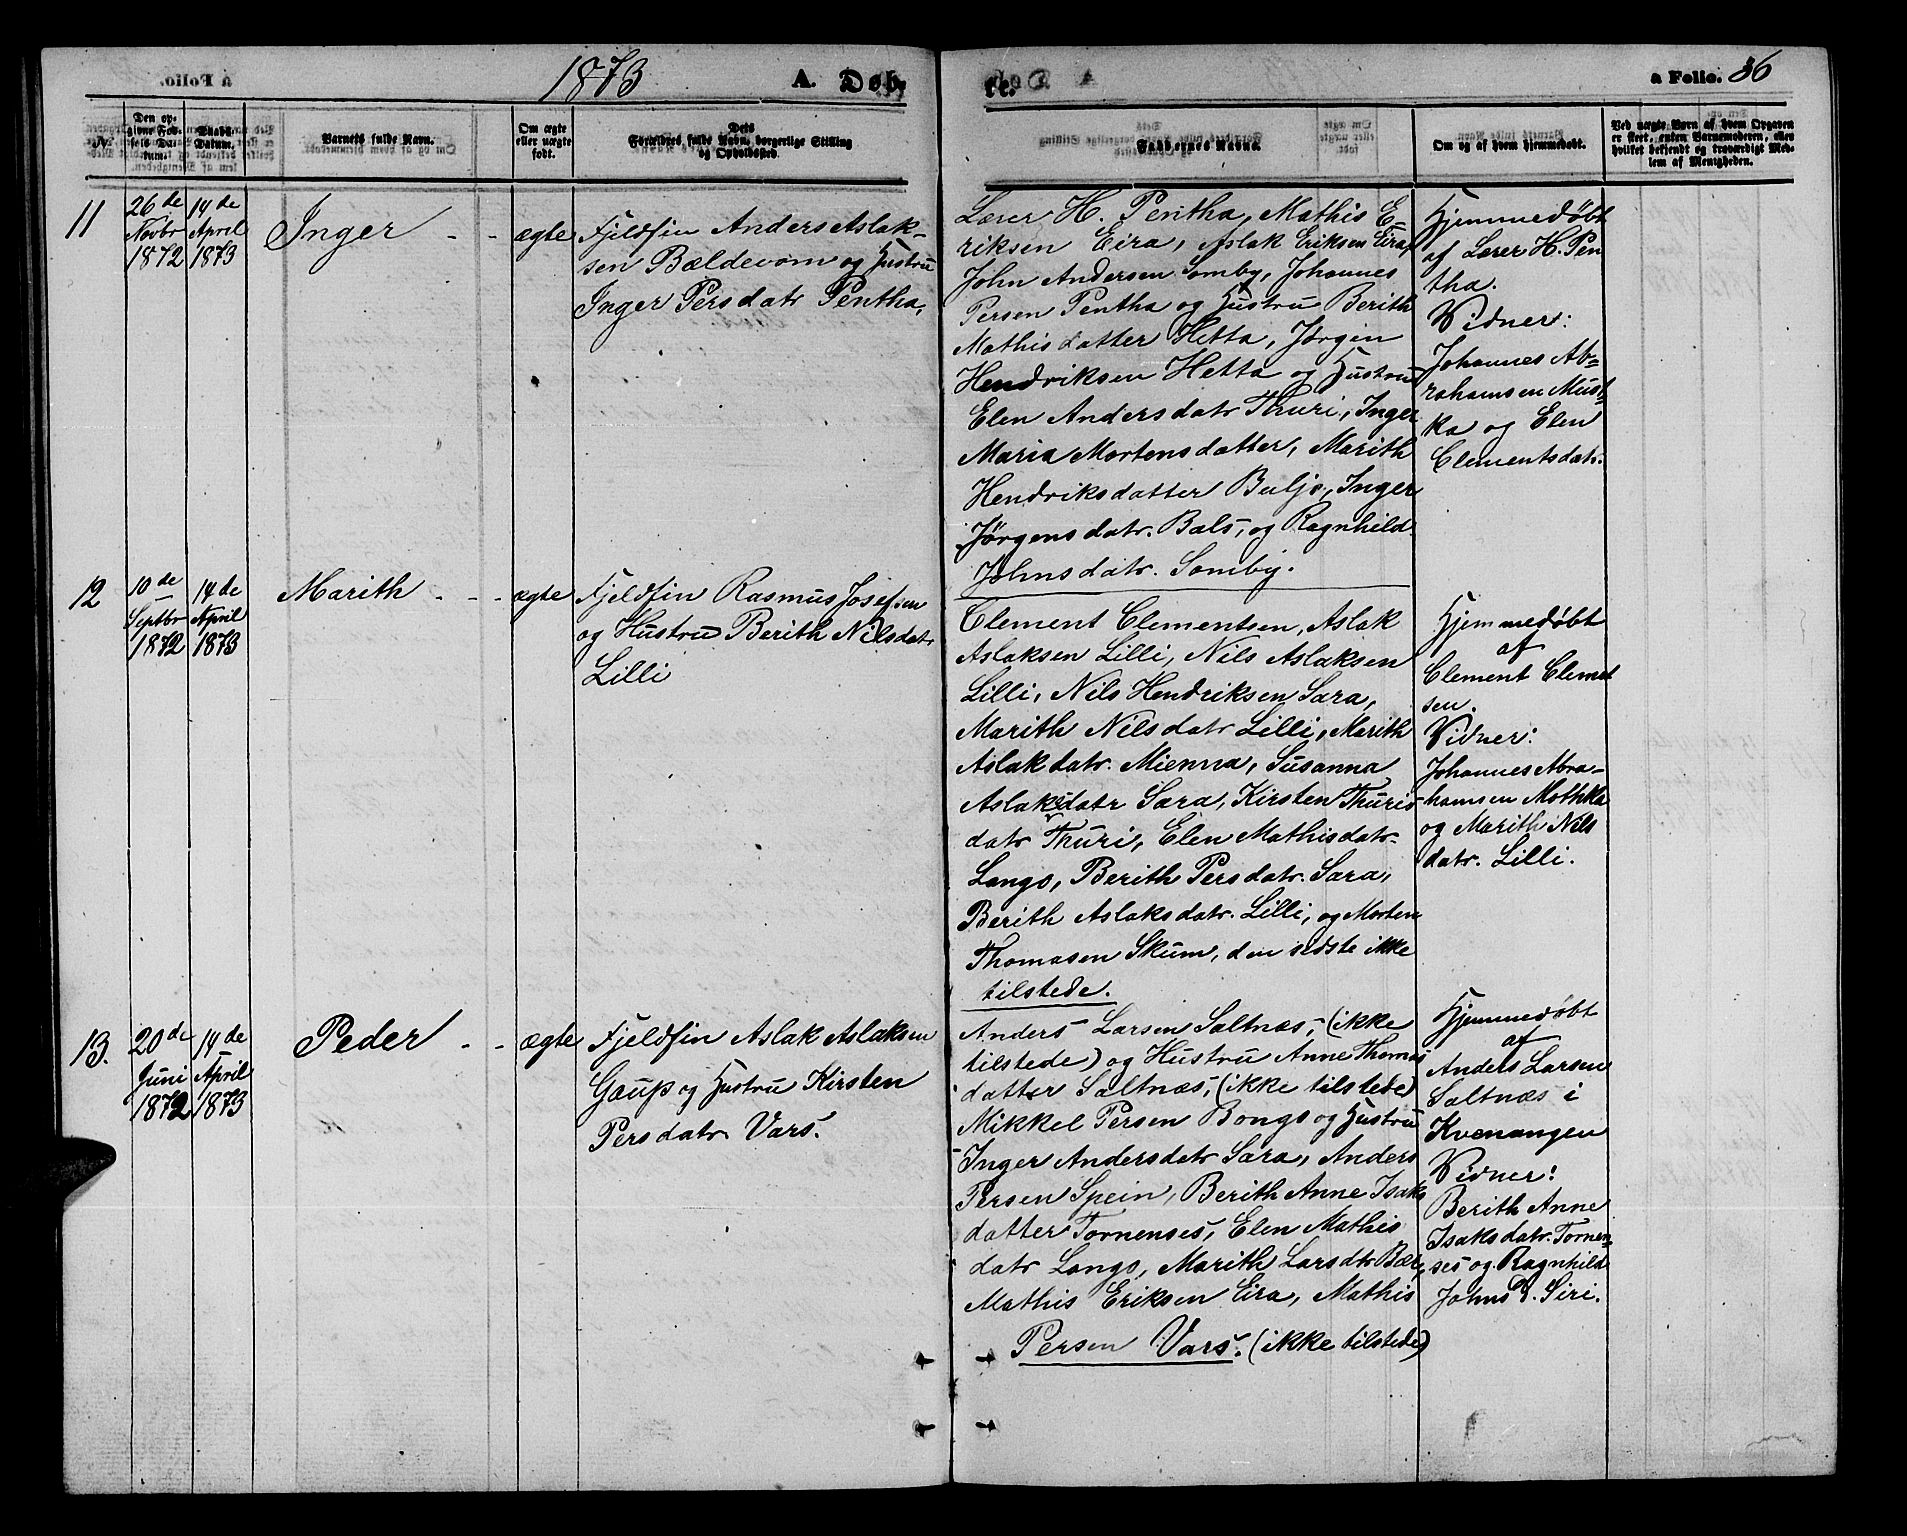 1873
A. Døb-
te.
a Folio. 36
№
Den op-
givne Fød-
sels Da-
tum.
Daabs-
Datum.
Barnets fulde Navn.
Om ægte
eller uægte
født.
Dets
Forældres fulde Navn, borgerlige Stilling
og Opholdssted.
Faddernes Navne.
Om og af hvem hjemmedøbt.
Ved uægte Børn af hvem Opgaven
er skeet, enten Barnemoderen, eller
hvilket bekjendt og troværdigt Med-
lem af Menigheden.
11
26de
Novbr
1872
14de
April
1873
Inger - -
ægte
Fjeldfin Anders Aslak-
sen Bældevom og Hustru
Inger Persdatr Pentha.
Lærer H. Pentha, Mathis E-
riksen Eira, Aslak Eriksen Eira,
John Andersen Somby, Johannes
Persen Pentha og Hustru Berith
Mathisdatter Hetta, Jørgen
Hendriksen Hetta og Hustru
Elen Andersdatr Thuri, Inger
Maria Mortensdatter, Marith
Hendriksdatter Buljo, Inger
Jørgensdatr. Bals, og Ragnhild
Johnsdatr. Somby.
Hjemmedøbt
af Lærer H. Pen
tha.
Vidner:
Johannes Ab-
rahamsen Must-
ka og Elen
Clementsdatr.
12
10de
Septbr
1872
14de
April
1873
Marith - - -
ægte
Fjeldfin Rasmus Josefsen
og Hustru Berith Nilsdatr
Lilli
Clement Clementsen, Aslak
Aslaksen Lilli, Nils Aslaksen
Lilli, Nils Hendriksen Sara,
Marith Nilsdatr Lilli, Marith
Aslakdatr. Mienna, Susanna
Aslaksdatr Sara, Kirsten Thuris-
datr Thuri, Elen Mathisdatr-
Lango, Berith Persdatr. Sara,
Berith Aslaksdatr. Lilli, og Morten
Thomasen Skum, den sidste ikke
tilstede.
Hjemmedøbt
af
Clement Clement
sen.
Vidner:
Johannes Abra-
hamsen Mothka
og Marith Nils
datr. Lilli.
13.
20de
Juni
1872
14de
April
1873
Peder - -
ægte
Fjeldfin Aslak Aslaksen
Gaup og Hustru Kirsten
Persdatr Vars.
Anders Larsen Saltnæs, (ikke
tilstede) og Hustru Anne Thomas
datter Saltnæs, (ikke tilstede)
Mikkel Persen Bongo og Hustru
Inger Andersdatr Sara, Anders
Persen Spein, Berith Anne Isaks
datter Tornenses, Elen Mathis
datr Lango, Marith Larsdtr Bær,
Mathis Eriksen Eira, Mathis
Persen Vars. (ikke tilstede)
Hjemmedøbt
af
Anders Larsen
Saltnæs i
Kvenangen
Vidner:
Berith Anne
Isaksdatr. Tornen-
ses og Ragnhild
Johns D. Siri.